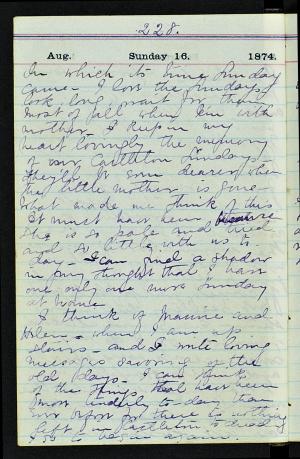 228.
Aug. Sunday 16. 1874.
On which its time Sunday
came - I love the Sundays,
look long, wait for them
most of all when I'm with
mother. I keep in my
heart lovingly the memory
of our Castleton Sundays.
They'll be even dearer when
the little mother is gone -
what made me think of this
It must have been because
she is so pale and tired
and so little with us to-
day. I can find a shadow
in my thought that I have
one, only one more Sunday
at home.
I think of Maurine and
Helen - when I am up
stairs - and I write loving
messages savoring of the
old days. I can think
of the things that have been
more kindly to-day than
ever before for there is nothing
left in Castleton to dread